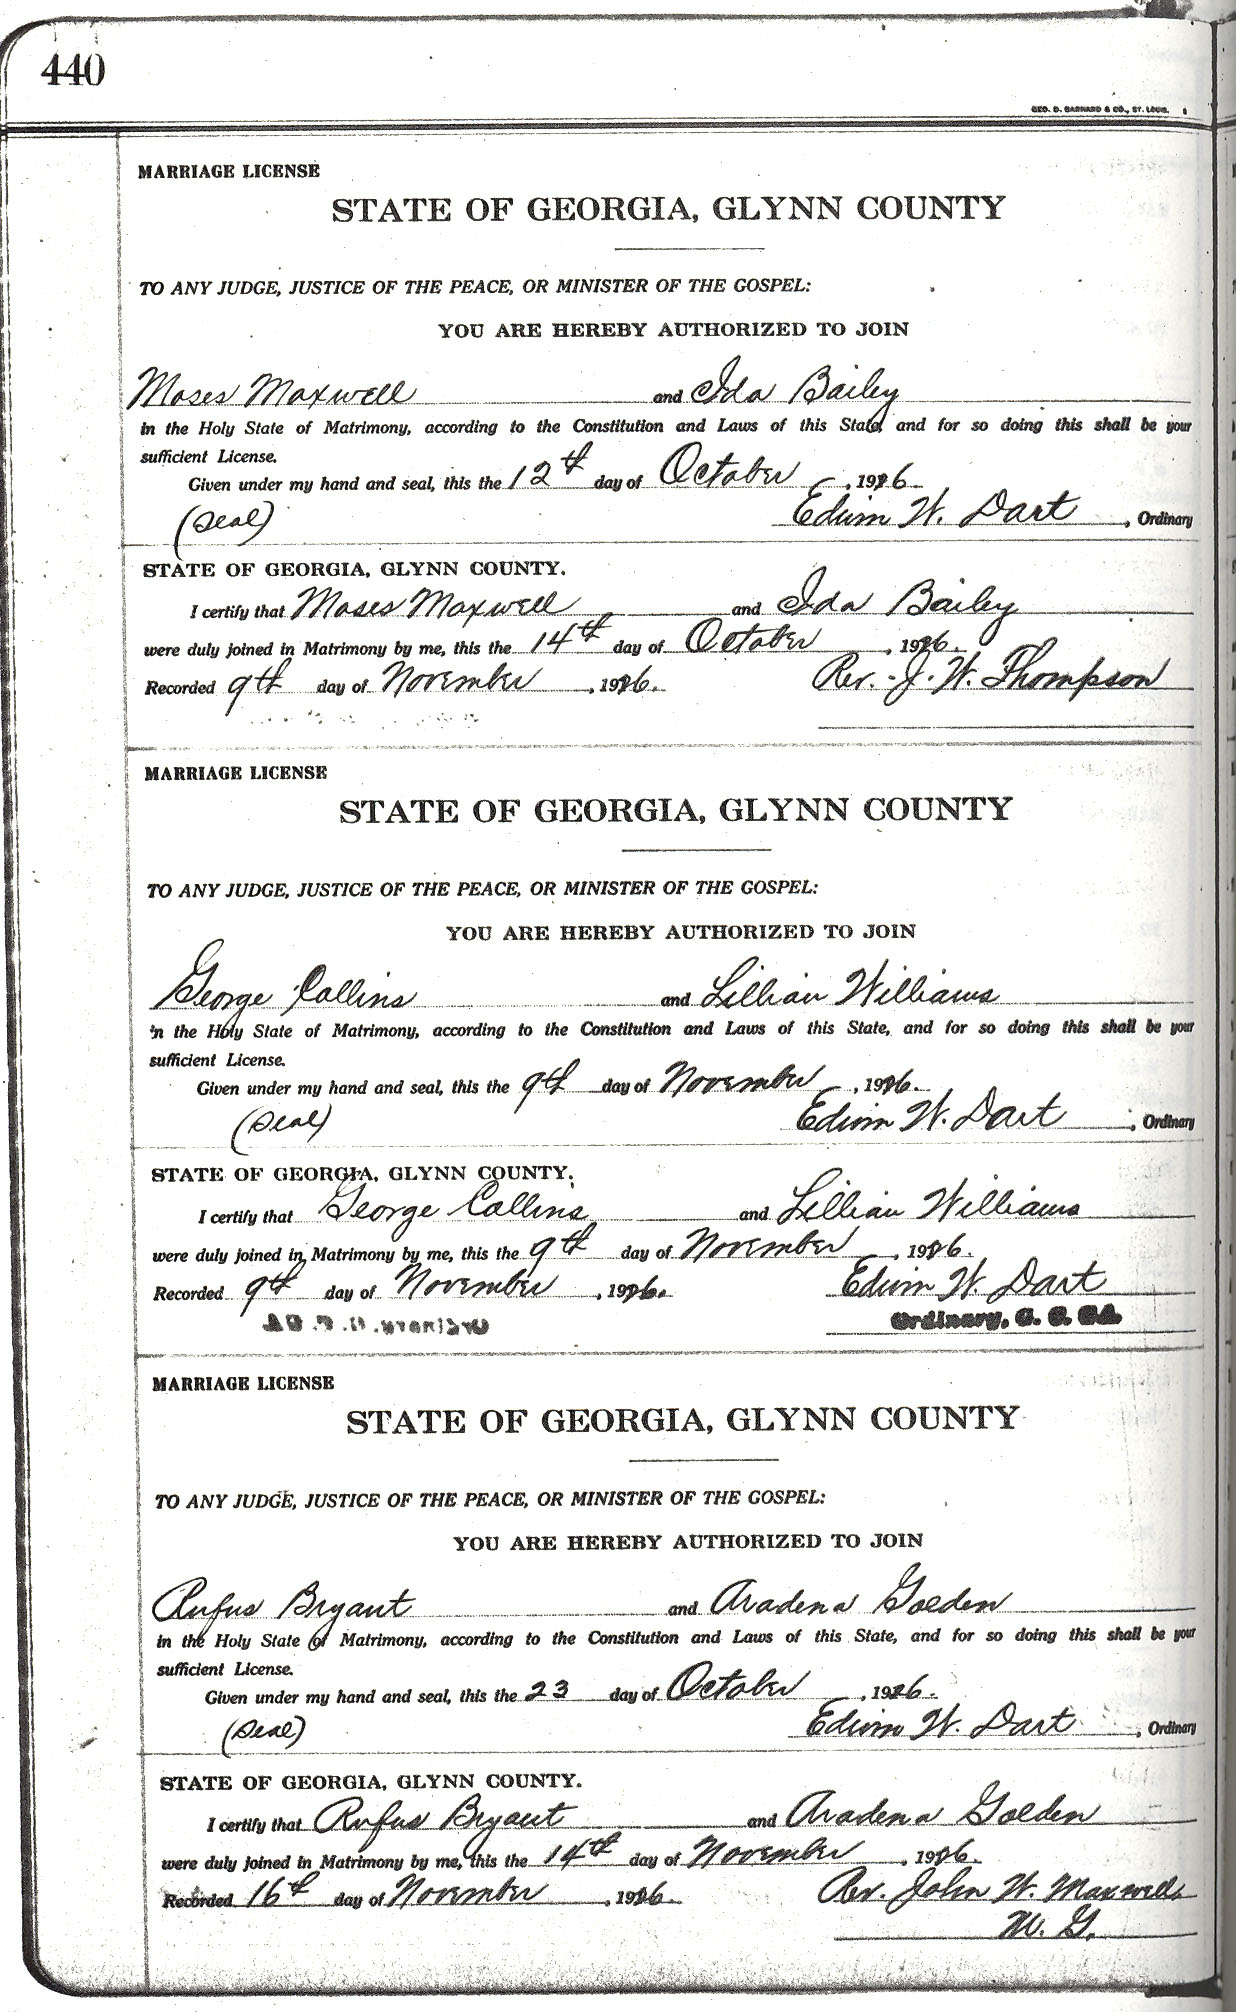 440
GEO. D. BARNARD & CO., ST. LOUIS.
MARRIAGE LICENSE
STATE OF GEORGIA, GLYNN COUNTY
TO ANY JUDGE, JUSTICE OF THE PEACE, OR MINISTER OF THE GOSPEL:
YOU ARE HEREBY AUTHORIZED TO JOIN
Moses Maxwell and Ida Bailey
in the Holy State of Matrimony, according to the Constitution and Laws of this State, and for so doing this shall be your
sufficient License.
Given under my hand and seal, this the 12th day of October, 1926.
(Seal) Edwin W. Dart, Ordinary
STATE OF GEORGIA, GLYNN COUNTY.
I certify that Moses Maxwell and Ida Bailey
were duly joined in Matrimony by me, this the 14th day of October, 1926.
Recorded 9th day of November, 1926. Rev. J. W. Thompson
MARRIAGE LICENSE
STATE OF GEORGIA, GLYNN COUNTY
TO ANY JUDGE, JUSTICE OF THE PEACE, OR MINISTER OF THE GOSPEL:
YOU ARE HEREBY AUTHORIZED TO JOIN
George Collins and Lillian Williams
in the Holy State of Matrimony, according to the Constitution and Laws of this State, and for so doing this shall be your
sufficient License.
Given under my hand and seal, this the 9th day of November, 1926.
(Seal) Edwin W. Dart, Ordinary
STATE OF GEORGIA, GLYNN COUNTY.
I certify that George Collins and Lillian Williams
were duly joined in Matrimony by me, this the 9th day of November, 1926.
Recorded 9th day of November, 1926. Edwin W. Dart
Ordinary, G. C. Ga.
MARRIAGE LICENSE
STATE OF GEORGIA, GLYNN COUNTY
TO ANY JUDGE, JUSTICE OF THE PEACE, OR MINISTER OF THE GOSPEL:
YOU ARE HEREBY AUTHORIZED TO JOIN
Rufus Bryant and Aradena Golden
in the Holy State of Matrimony, according to the Constitution and Laws of this State, and for so doing this shall be your
sufficient License.
Given under my hand and seal, this the 23 day of October, 1926.
(Seal) Edwin W. Dart, Ordinary
STATE OF GEORGIA, GLYNN COUNTY.
I certify that Rufus Bryant and Aradena Golden
were duly joined in Matrimony by me, this the 14th day of November, 1926.
Recorded 16th day of November, 1926. Rev. John W. Maxwell
M. G.